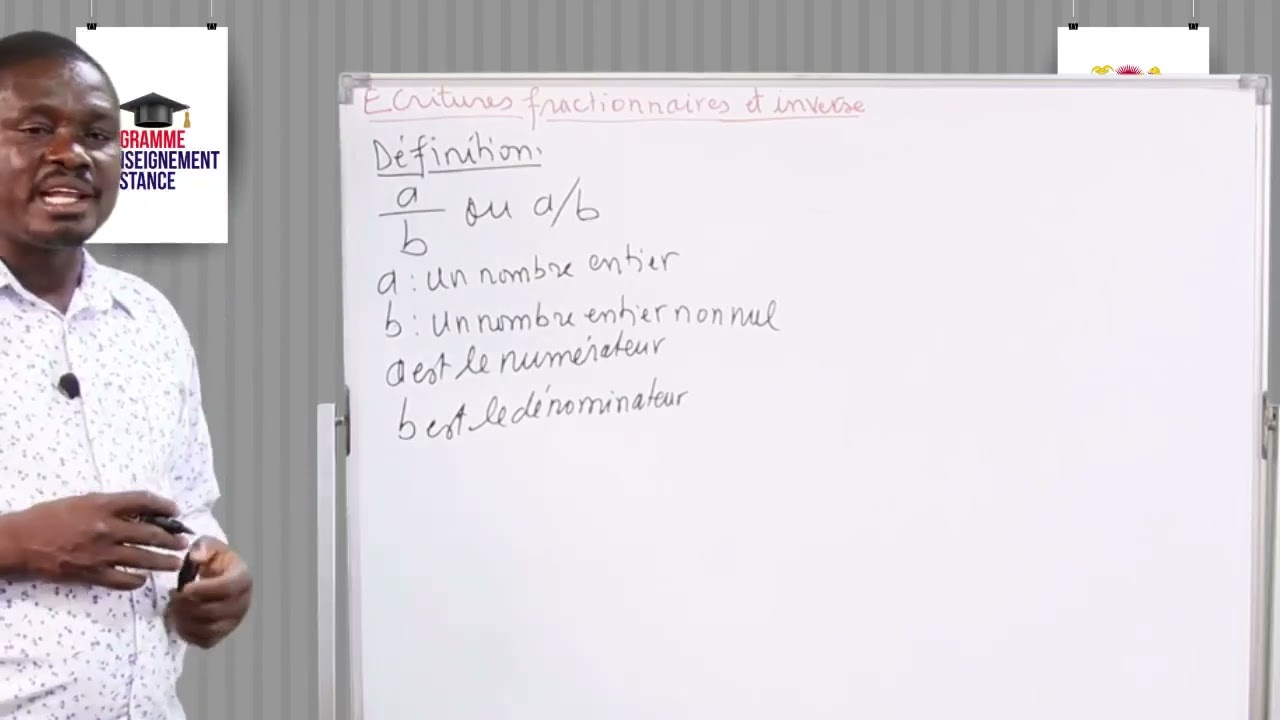 GRAMME
NSEIGNEMENT
STANCE
Ecritures fractionnaires et inverse
Définition.
a
b
ou a/b
a : un nombre entier
b : un nombre entier non nul
a est le numérateur
b est le dénominateur